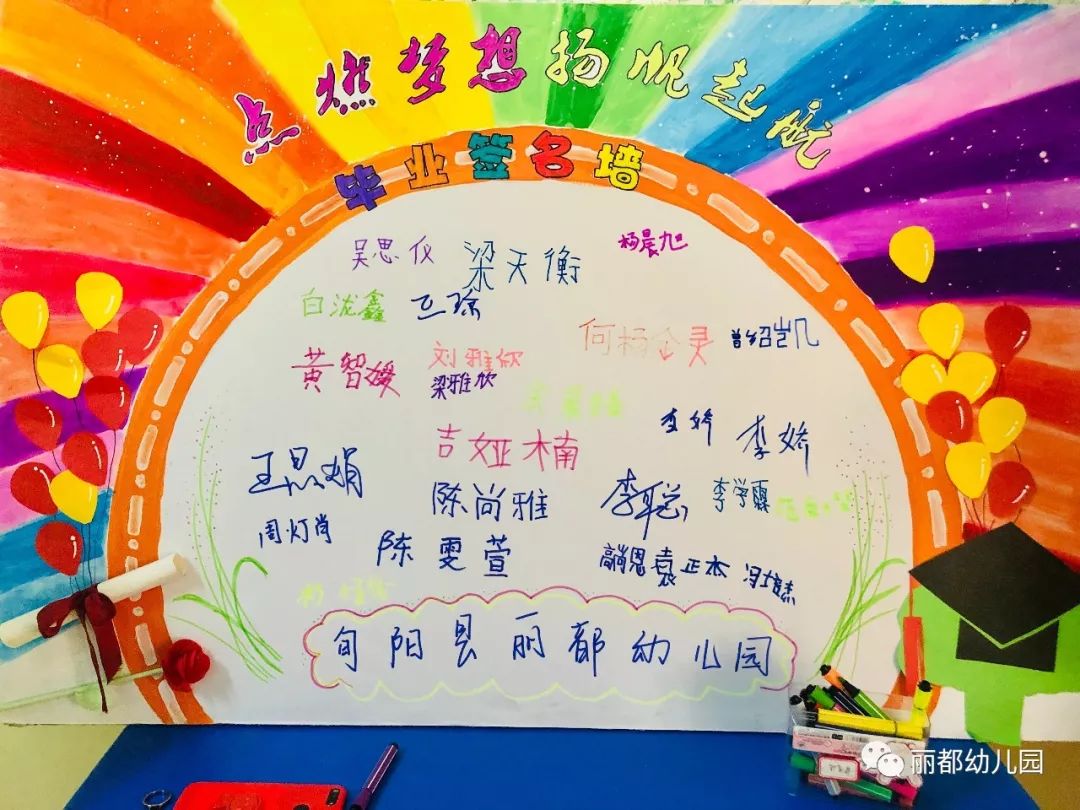 点燃梦想扬帆起航
毕业签名墙
吴思仪 梁天衡 杨晨旭
白泷鑫
黄智媛 刘雅欣 曾绍凯
梁雅欣
吉娅楠 李娇 李娇
王思娟 陈尚雅 李聪 李学霖
周灯肖 陈雯萱 袁正杰
旬阳县丽都幼儿园
丽都幼儿园